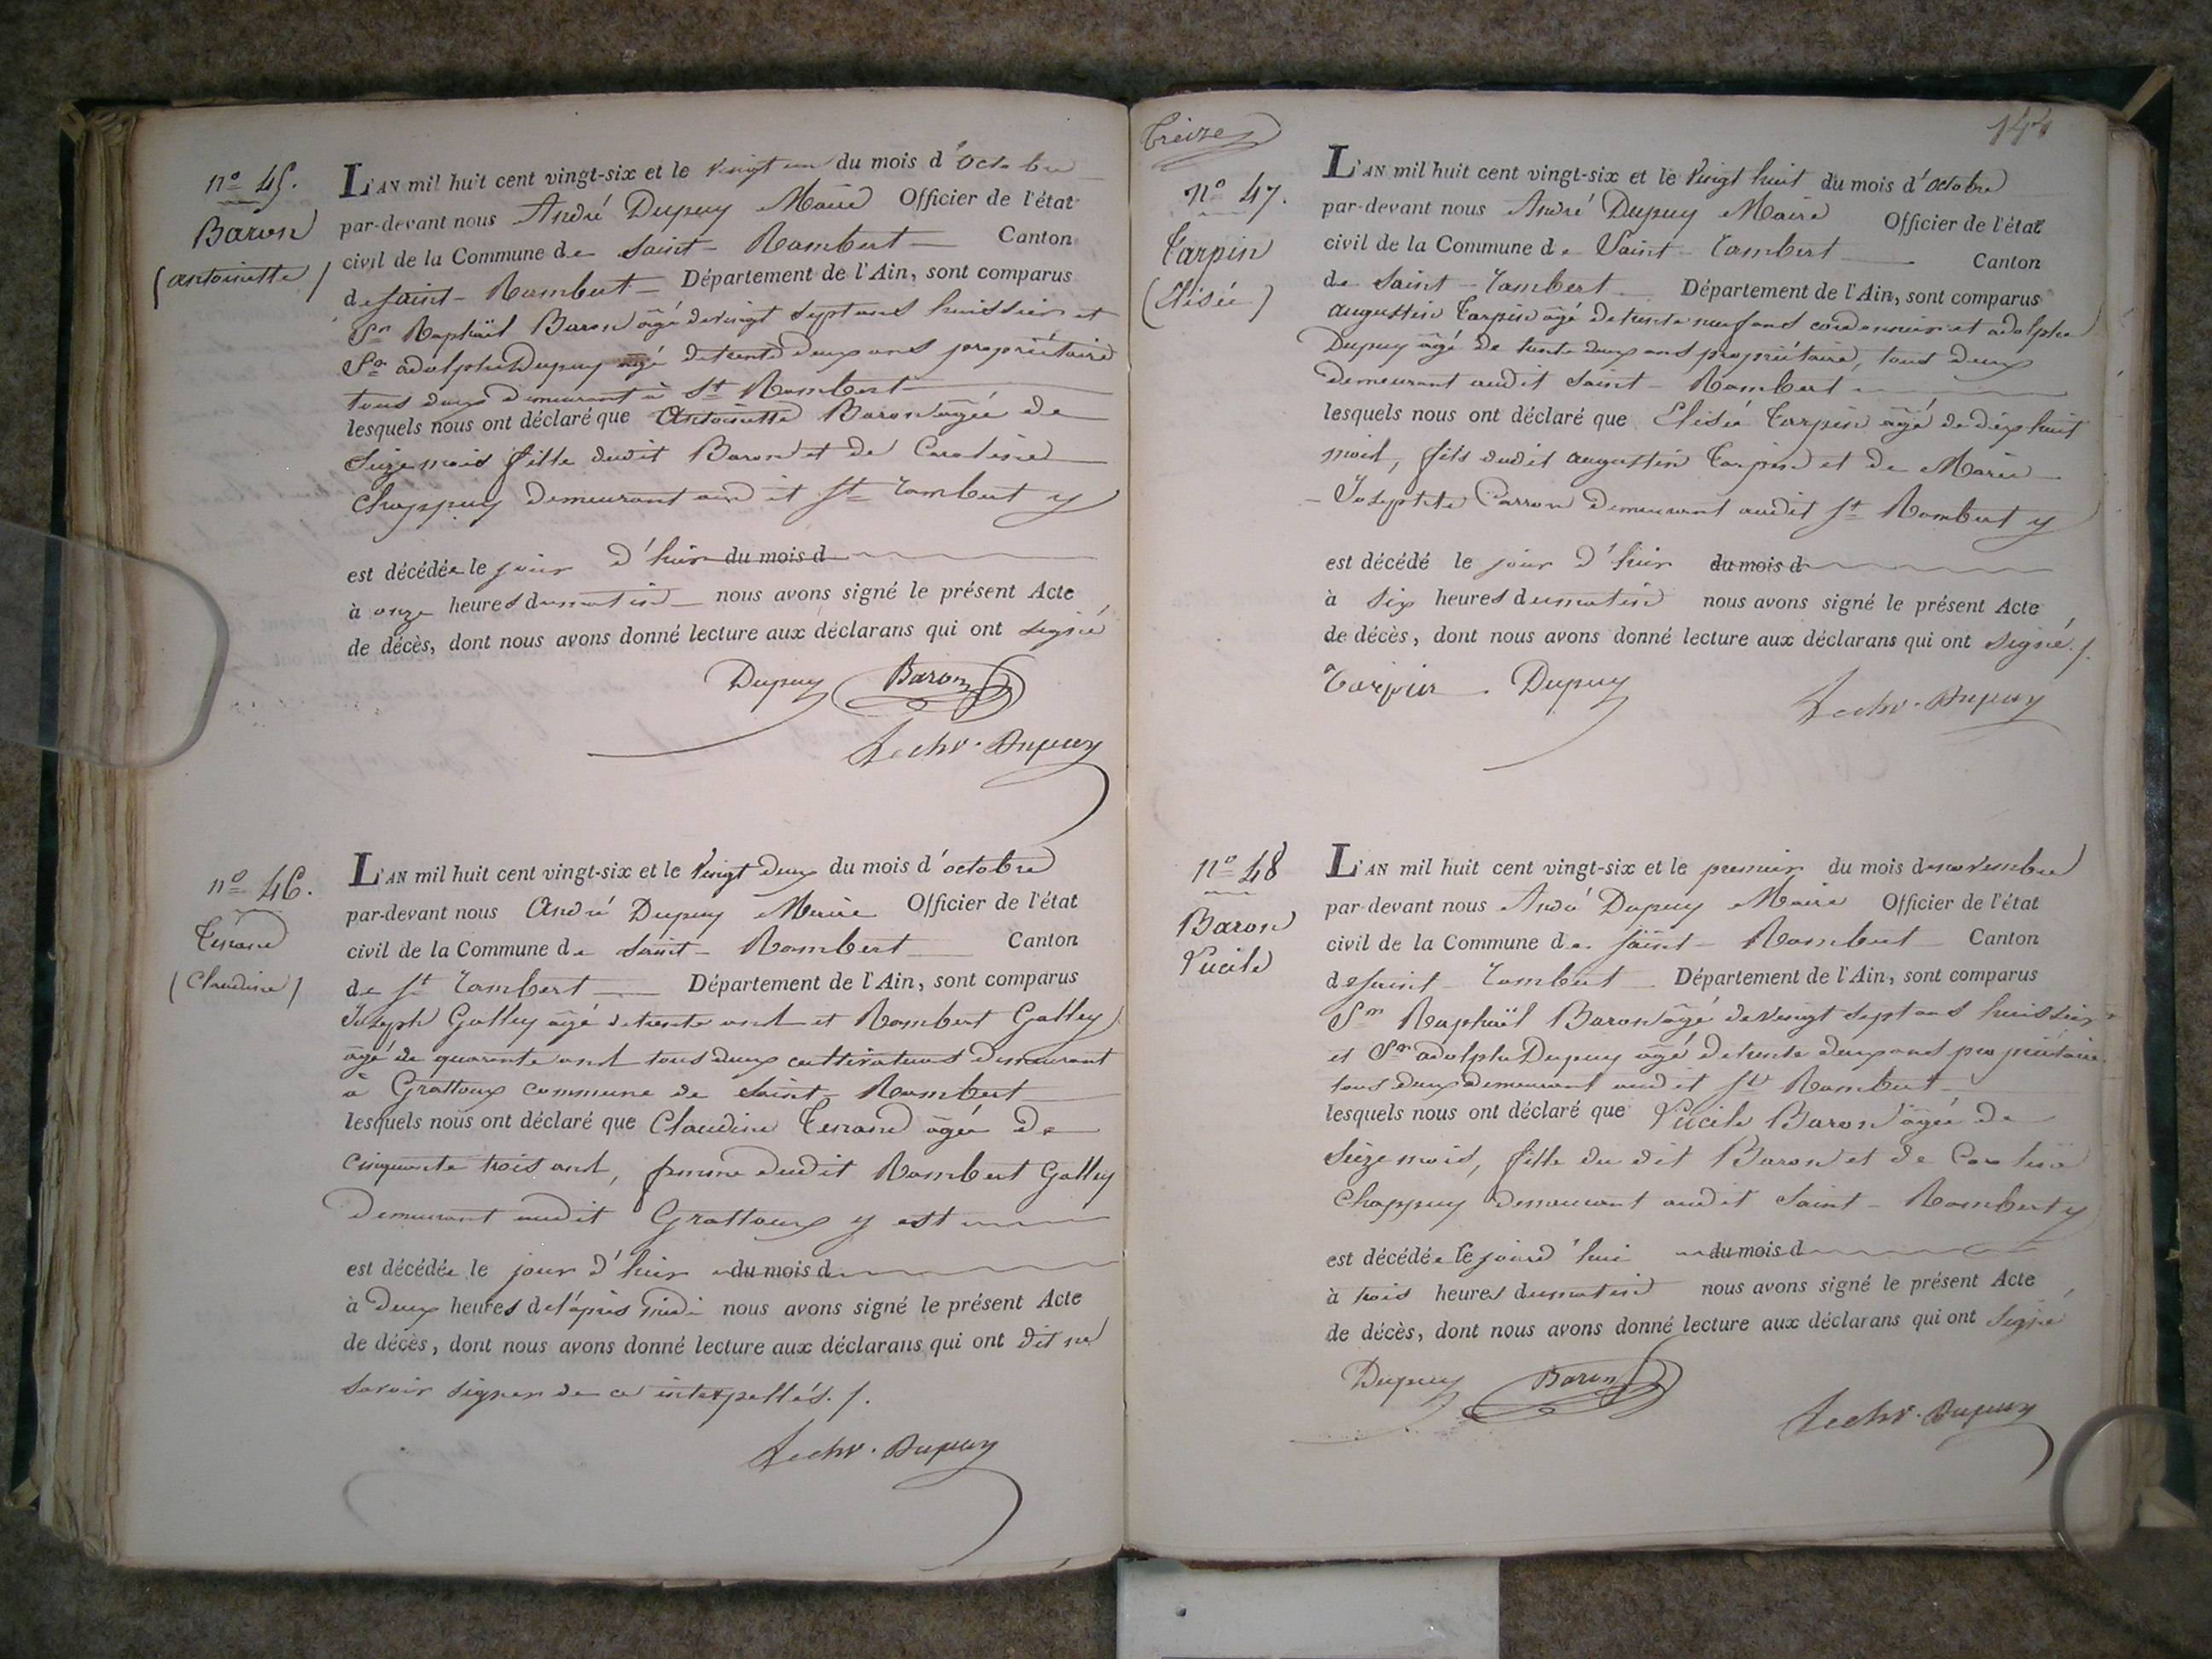 n.º 45.
Baron
(antoinette)
L'AN mil huit cent vingt-six et le vingt un du mois d'octobre
par-devant nous André Dupuy Maire Officier de l'état
civil de la Commune de Saint-Rambert Canton
de saint-Rambert Département de l'Ain, sont comparus
Sr Raphaël Baron âgé de vingt sept ans huissier et
Sr adolphe Dupuy âgé de trente deux ans propriétaire
tous deux demeurant à St Rambert
lesquels nous ont déclaré que Antoinette Baron âgée de
Seize mois fille dudit Baron et de Caroline
Chappuy demeurant audit St Rambert y
est décédée le jour d'hier du mois d
à onze heures du matin nous avons signé le présent Acte
de décès, dont nous avons donné lecture aux déclarans qui ont signé
Dupuy Baron
Dupuy
n.º 46.
Tenand
(Claudine)
L'AN mil huit cent vingt-six et le vingt deux du mois d'octobre
par-devant nous André Dupuy Maire Officier de l'état
civil de la Commune de Saint-Rambert Canton
de St Rambert Département de l'Ain, sont comparus
Joseph Galley âgé de trente ans et Rambert Galley
âgé de quarante ans tous deux cultivateurs demeurant
à Grattoux commune de Saint-Rambert
lesquels nous ont déclaré que Claudine Tenand âgée de
cinquante trois ans, femme dudit Rambert Galley
demeurant audit Grattoux y est
est décédée le jour d'hier du mois d
à deux heures de l'après midi nous avons signé le présent Acte
de décès, dont nous avons donné lecture aux déclarans qui ont dit ne
savoir signer de ce interpellés./.
Dupuy
Treize
144
n.º 47.
Tarpin
(Elisée)
L'AN mil huit cent vingt-six et le vingt huit du mois d'octobre
par-devant nous André Dupuy Maire Officier de l'état
civil de la Commune de Saint-Rambert Canton
de Saint-Rambert Département de l'Ain, sont comparus
augustin Tarpin âgé de trente neuf ans cordonnier et adolphe
Dupuy âgé de trente deux ans propriétaire, tous deux
demeurant audit Saint-Rambert
lesquels nous ont déclaré que Elisée Tarpin âgé de dix huit
mois, fils dudit augustin Tarpin et de Marie
Josephte Carron demeurant audit St Rambert y
est décédé le jour d'hier du mois d
à six heures du matin nous avons signé le présent Acte
de décès, dont nous avons donné lecture aux déclarans qui ont signé./.
Tarpin Dupuy
Dupuy
n.º 48
Baron
Lucile
L'AN mil huit cent vingt-six et le premier du mois de novembre
par-devant nous André Dupuy Maire Officier de l'état
civil de la Commune de Saint-Rambert Canton
de saint-Rambert Département de l'Ain, sont comparus
Sr Raphaël Baron âgé de vingt sept ans huissier
et Sr adolphe Dupuy âgé de trente deux ans propriétaire
tous deux demeurant audit St Rambert
lesquels nous ont déclaré que Lucile Baron âgée de
Seize mois, fille du dit Baron et de Caroline
Chappuy demeurant audit Saint-Rambert y
est décédée le jourd'hui du mois d
à trois heures du matin nous avons signé le présent Acte
de décès, dont nous avons donné lecture aux déclarans qui ont signé
Dupuy Baron
Dupuy